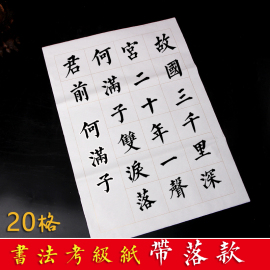 故國三千里深
宮二十年一聲
何滿子雙淚落
君前 何滿子
20格
書法考級紙 帶落款